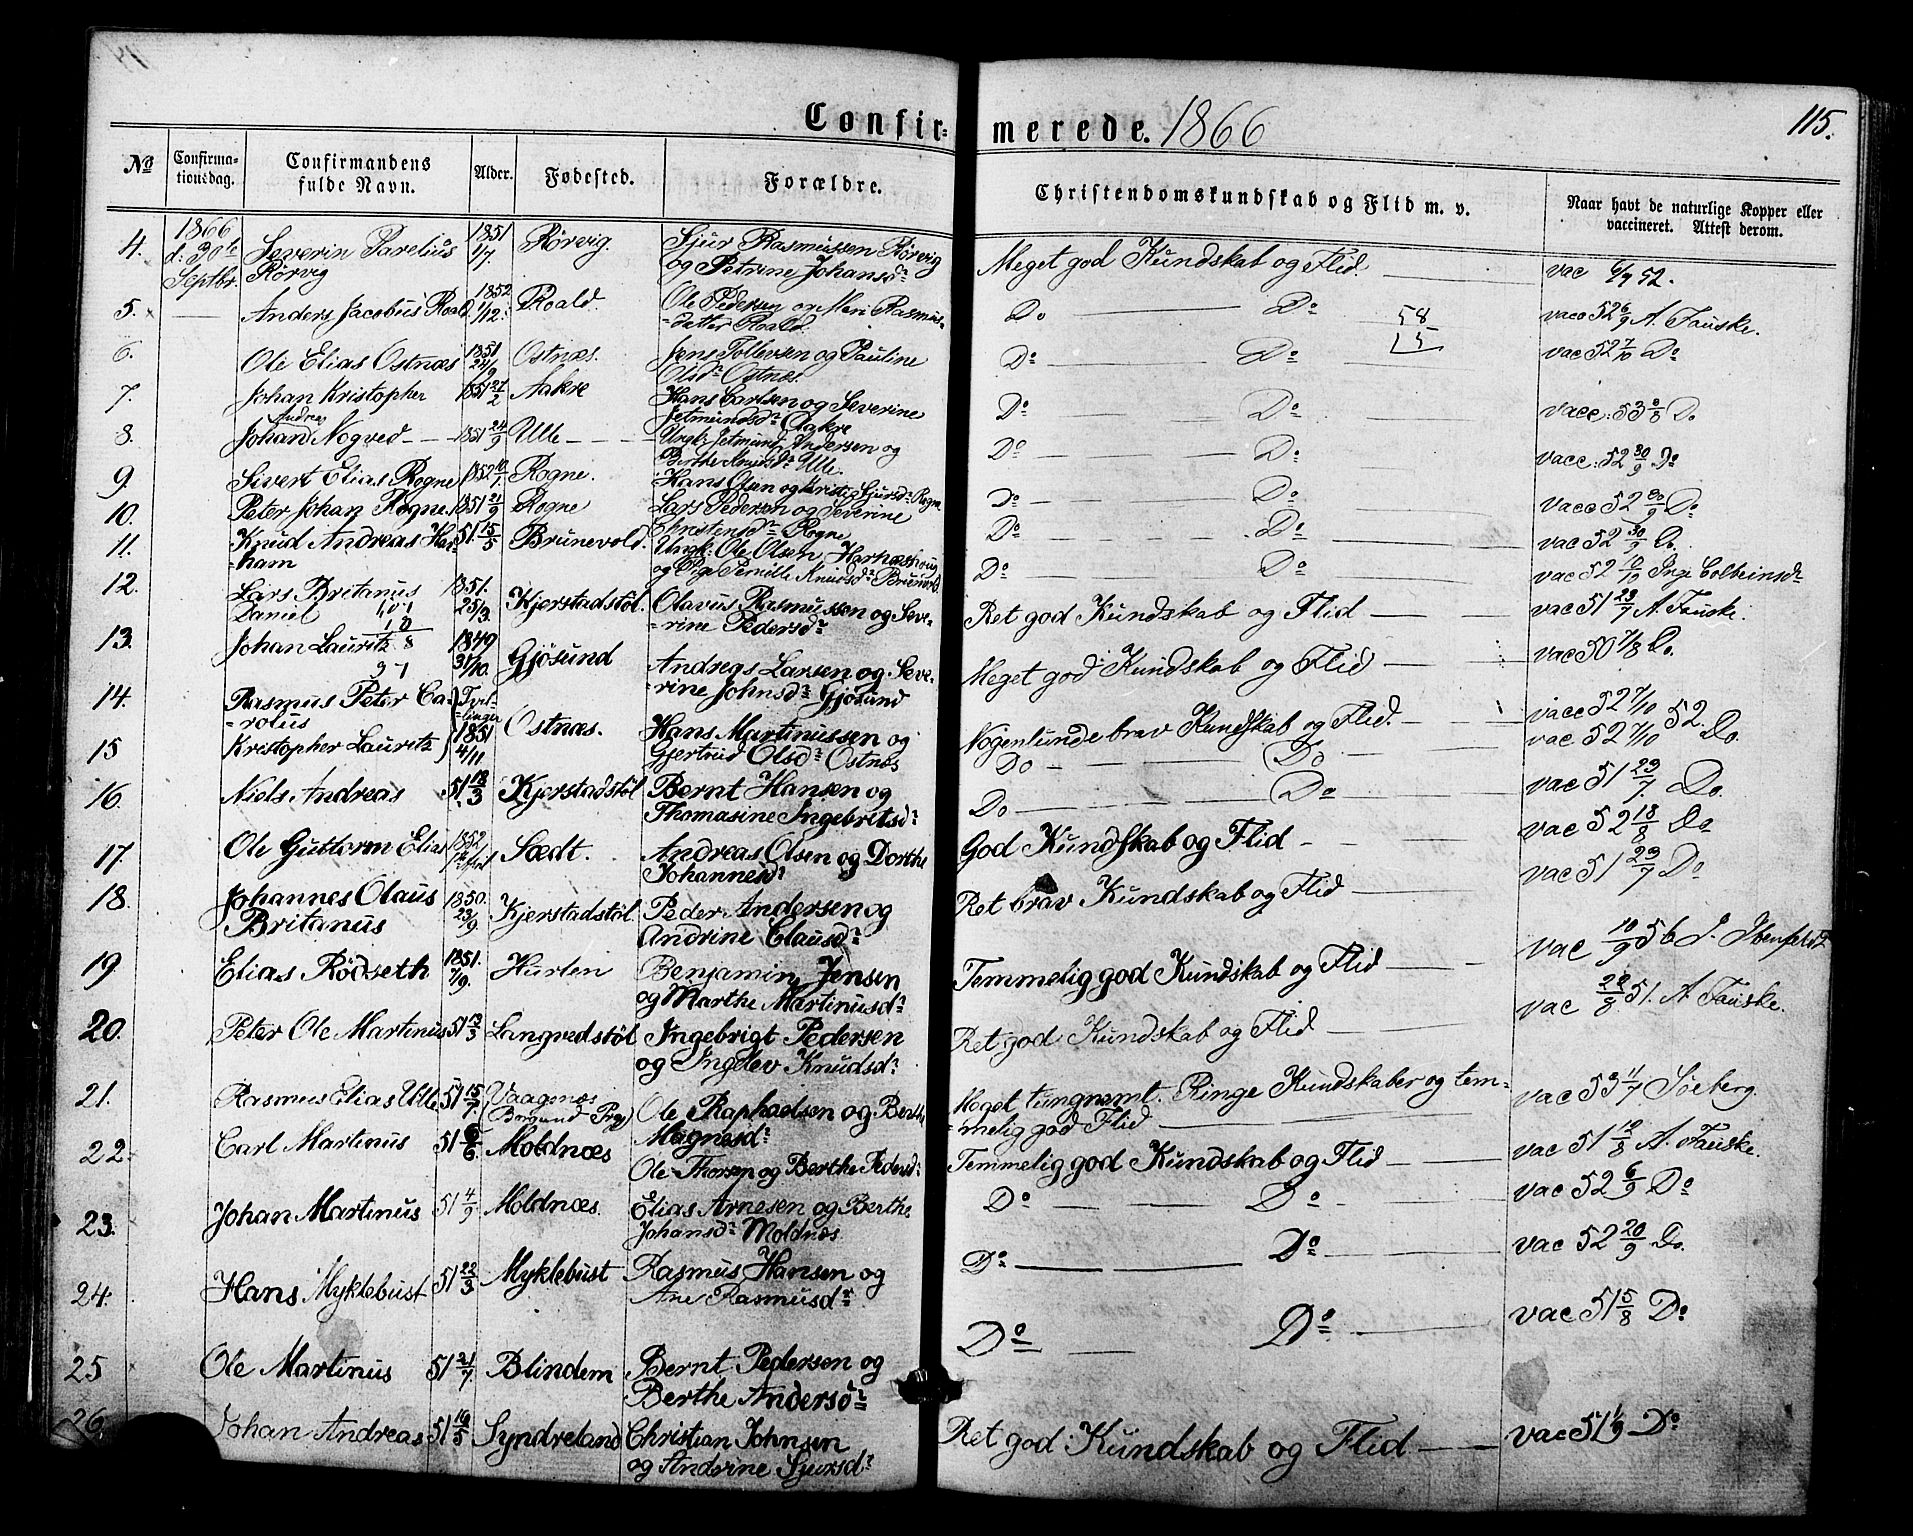 Confirmerede. 1866
115.
No
Confirmationsdag.
Confirmandens fulde Navn.
Alder.
Fødested.
Forældre.
Christendomskundskab og Flid m. v.
Naar havt de naturlige Kopper eller vaccineret. Attest derom.
4. 1866 d: 30te Septbr. Severin Parelius Rörvig 1851 1/7 Rörvig. Sjur Rasmussen Rörvig og Petrine Johansd: Meget god Kundskab og Flid vac 6/9 52.
5. Anders Jacobus Roald 1852 1/12. Roald. Ole Pedersen og Mari Rasmus-datter Roald. Do Do 58 15 vacc 52 6/9 A. Fauske.
6. Ole Elias Ostnæs 1851 24/9 Ostnæs. Jens Tollevsen og Pauline Olsd: Ostnæs. Do Do vac 52 7/10 Do
7. Johan Kristopher 1851 21/2 Aakre Hans Carlsen og Severine Jetmundsd: Aakre Do Do vacc: 53 8/8 Do
8. Johan Andreas Nogved 1851 24/9 Ulle Ungk: Jetmund Andersen og Berthe Knudsd: Ulle. Do Do vacc: 52 30/9 Do
9. Sivert Elias Rogne 1852 10/1 Rogne. Hans Olsen og Kristi Sjursd: Rogne Do Do vacc 52 30/9 Do
10. Peter Johan Rogne 1851 21/9 Rogne Lars Pedersen og Severine Christensd: Rogne Do Do vac 52 30/9 Do.
11. Knud Andreas Har-ham 51 15/5 Brunevold. Ungk: Ole Olsen Harhamshoug og Pige Pernille Knudsd: Brunevold Do Do vac 52 10/10 Inge Colbeinsd:
12. Lars Britanus Daniel 1851. 25/3. Kjerstadstöl. Olavus Rasmussen og Seve-rine Pedersd: Ret god Kundskab og Flid vac 51 23/7 A. Fauske.
13. Johan Lauritz 1849 31/10. Gjösund Andreas Larsen og Seve-rine Johnsd: Gjösund Meget god Kundskab og Flid vac 50 7/8 Do.
14. Rasmus Peter Ca-rolus Tvil-linger 1851 4/11 Ostnæs. Hans Martinussen og Gjertrud Olsd: Ostnæs Nogenlunde brav Kundskab og Flid. vacc 52 7/10 52.
15 Kristopher Lauritz Do Do vac 52 7/10 Do.
16. Niels Andreas 51 18/3 Kjerstadstöl Bernt Hansen og Thomasine Ingebritsd: Do Do vac 51 23/7. Do.
17. Ole Guttorm Elias 1852 Sædt. Andreas Olsen og Dorthe Johannesd: God Kundskab og Flid vac 52 18/8 Do
18. Johannes Olaus Britanus 1850. 23/9. Kjerstadstöl. Peder Andersen og Andrine Clausd: Ret brav Kundskab og Flid vac 51 23/7 Do
19 Elias Rödseth 1851. 7/9. Hurlen Benjamin Jensen og Marthe Martinusd: Temmelig god Kundskab og Flid vac 10/9 56 J.
20. Peter Ole Martinus 51 13/3 Langvedstöl Ingebrigt Pedersen og Ingelev Knudsd: Ret god Kundskab og Flid vac 51. A. Fauske.
21. Rasmus Elias Ulle 51 15/7. Vaagsnæs Borgund Prgj Ole Raphaelsen og Berthe Magnesd: Meget tungnemt. Ringe Kundskaber og tem-melig god Flid vac 53 1/7 Söeberg.
22. Carl Martinus 51 6/6. Moldnæs Ole Thorsen og Berthe Pedersd: Temmelig god Kundskab og Flid vac 51 12/8 A. Fauske.
23. Johan Martinus 51 4/9 Moldnæs. Elias Arnesen og Berthe Johansd: Moldnæs. Do Do vac 52 6/9 Do
24. Hans Myklebust 51 22/3 Myklebust Rasmus Hansen og Ane Rasmusd: Do Do vac 52 20/9 Do.
25 Ole Martinus 51 21/7. Blindem Bernt Pedersen og Berthe Andersd: Do Do vac 51 5/8 Do
26. Johan Andreas 51 19/5 Syndreland Christian Johnsen og Anderine Sjursd: Ret god Kundskab og Flid vac 51 1/9 Do